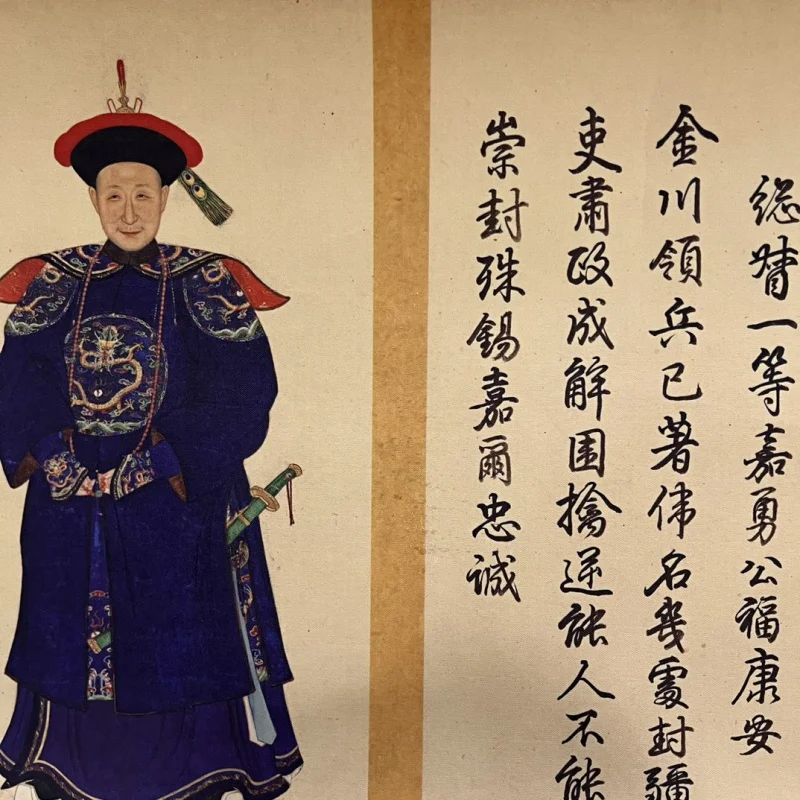 緫督一等嘉勇公福康安
金川領兵已著偉名幾處封疆
吏肅政成解圍擒逆能人不能
崇封殊錫嘉爾忠誠